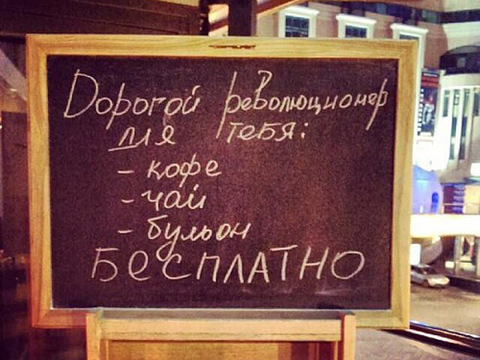 Дорогой революционер
для тебя:
- кофе
- чай
- бульон
БЕСПЛАТНО